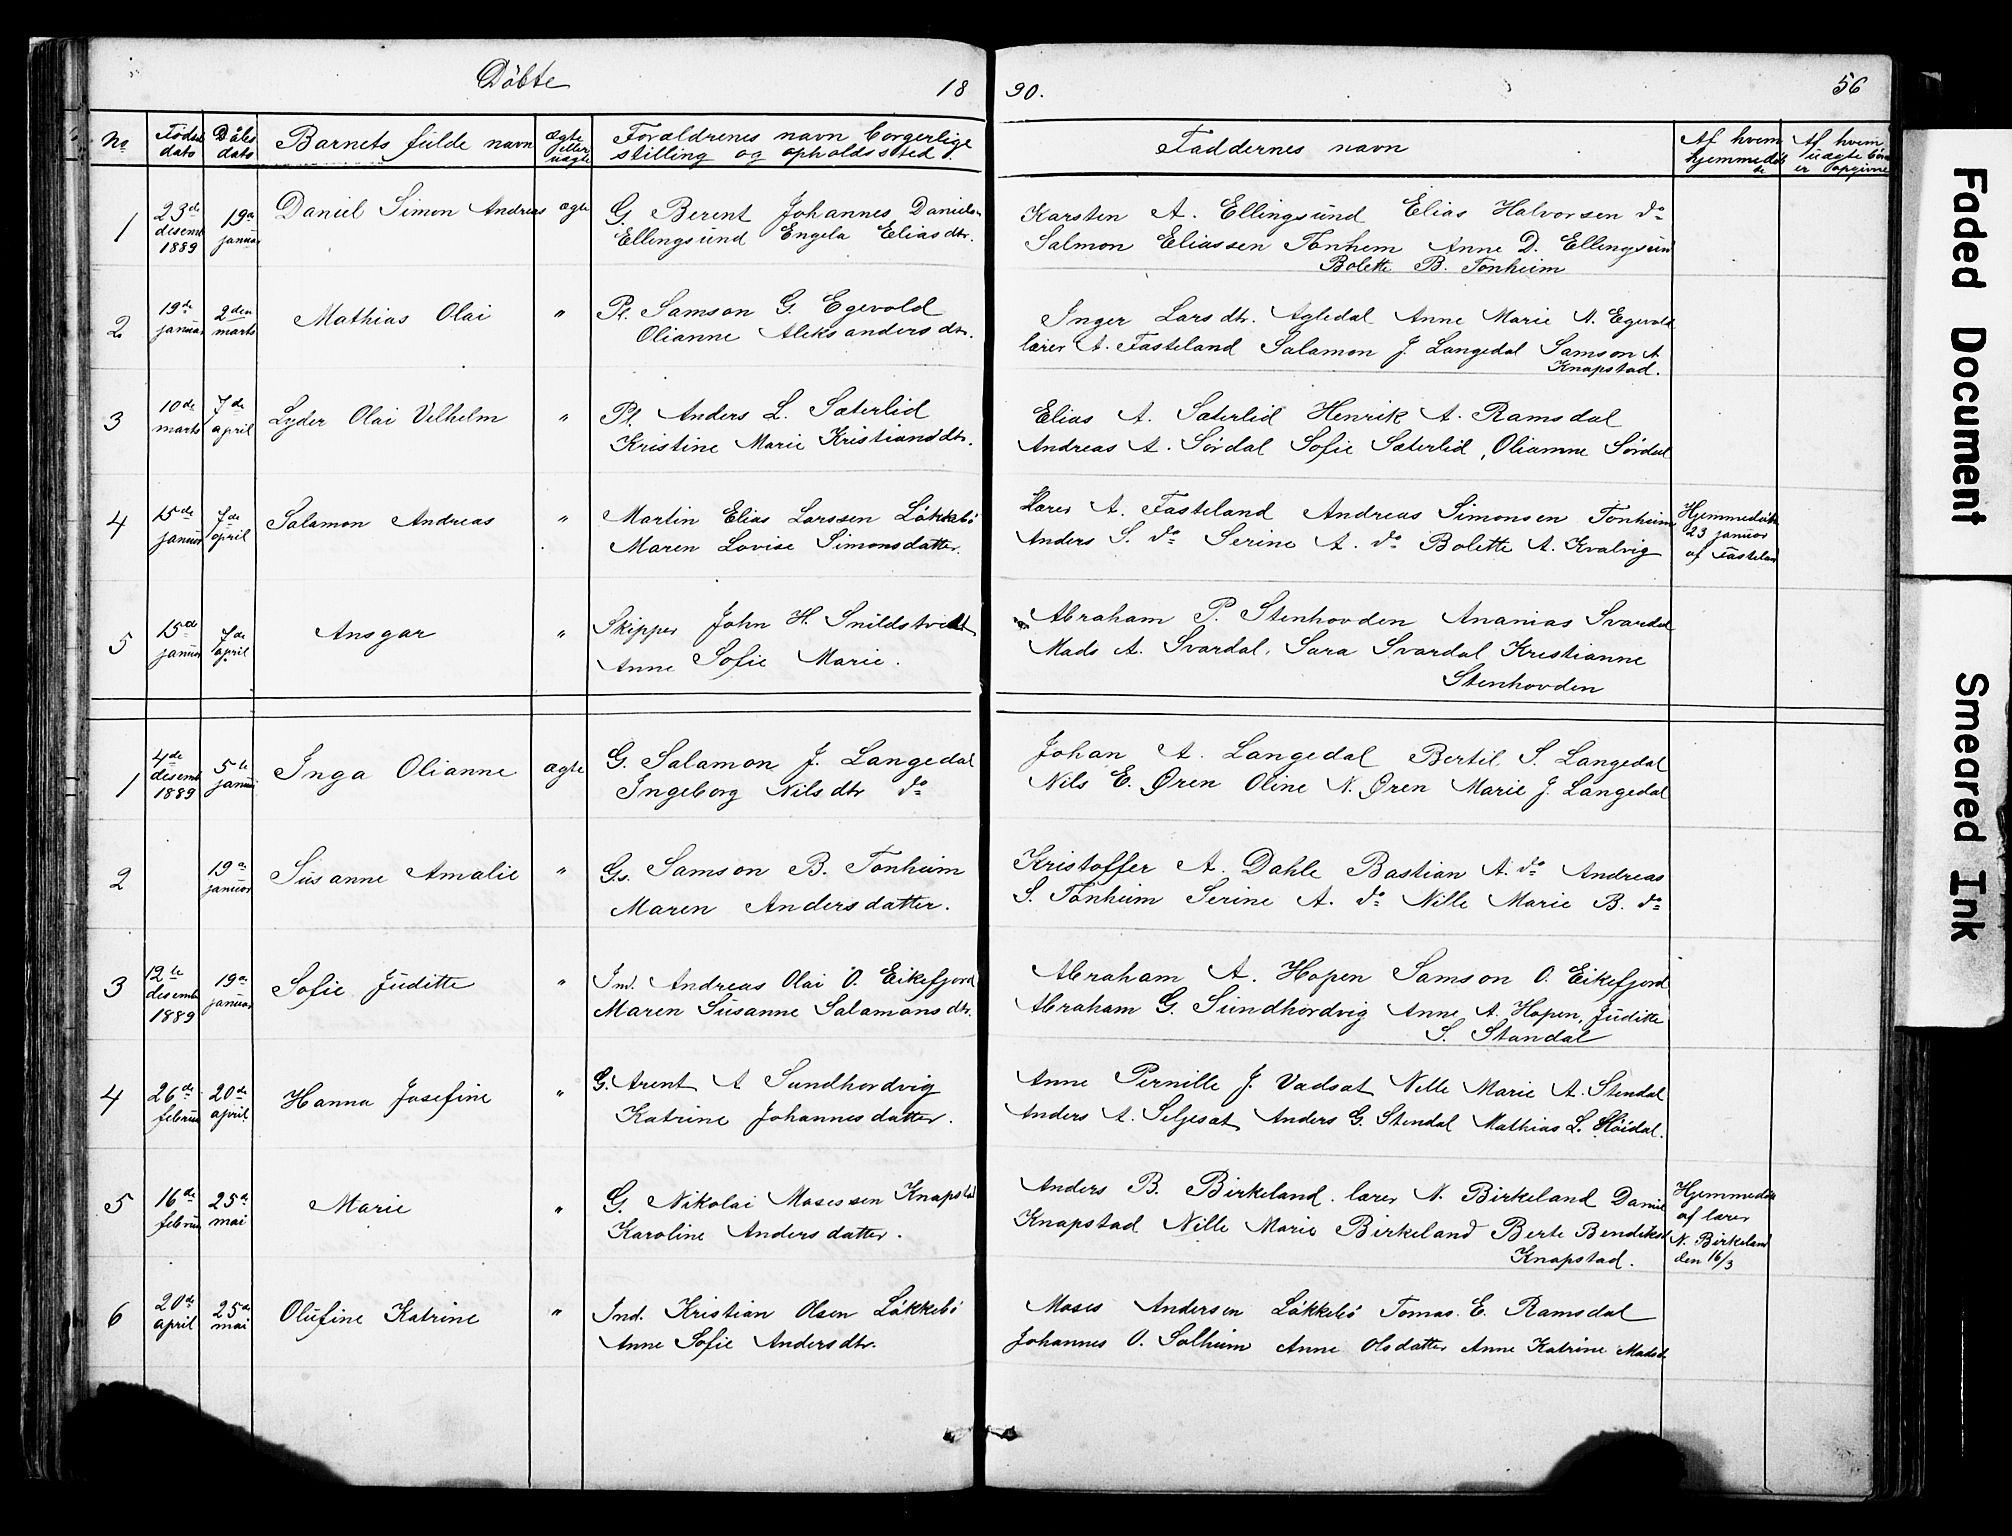 Döbte 18 90. 56
No Fødsels dato Dåbs dato Barnets fulde navn ægte eller uægte Forældrenes navn borgerlige stilling og opholdssted. Faddernes navn Af hvem hjemmedöbte Af hvem uægte börn er opgivne
1 23de desemb 1889 19a januar Daniel Simon Andreas ægte G Berent Johannes Daniels
Ellingsund Engela Eliasdtr.
Karsten A. Ellingsund Elias Halvorsen do
Salmon Eliassen Tonheim Anne D. Ellingsund
Bolette B. Tonheim
2 19de januar 2den marts Mathias Olai " Pl. Samson G. Egevold
Olianne Aleksandersdtr.
Inger Larsdtr. Agledal Anne Marie N. Egevold
lærer A. Fasteland Salamon J. Langedal Samson A.
Knapstad.
3 10de marts 7de april Lyder Olai Vilhelm " Pl. Anders L. Sæterlid
Kristine Marie Kristiansdtr.
Elias A. Sæterlid Henrik A. Ramsdal
Andreas A. Sördal Sofie Sæterlid, Olianne Sördal
4 15de januar 7de april Salamon Andreas " Martin Elias Larssen Lökkebö
Maren Lovise Simonsdatter.
Lærer A. Fasteland Andreas Simonsen Tonheim
Anders S. do Serine A. do Bolette A. Kvalvig
Hjemmedöbt
23 januar
af Fasteland
5 15de januar 7de april Ansgar " Skipper John H. Snildstvedt
Anne Sofie Marie.
Abraham P. Stenhovden Ananias Svardal
Mads A. Svardal. Sara Svardal Kristianne
Stenhovden
1 4de desemb 1889 5te januar Inga Olianne ægte G. Salamon J. Langedal
Ingeborg Nilsdtr do
Johan A. Langedal Bertil S. Langedal
Nils E. Øren Oline N. Øren Marie J. Langedal
2 19a januar Susanne Amalie " Gs. Samson B. Tonheim
Maren Andersdatter.
Kristoffer A. Dahle Bastian A. do Andreas
S. Tonheim Serine A. do Nille Marie B. do
3 12te desemb 1889 19a januar Sofie Juditte " Ind. Andreas Olai O. Eikefjord
Maren Susanne Salamonsdtr.
Abraham A. Hopen Samson O. Eikefjord
Abraham G. Sundhordvig Anne A. Hopen, Juditte
S. Standal
4 26de februar 20de april Hanna Josefine " G. Arent A Sundhordvig
Katrine Johannesdatter.
Anne Pernille J. Vadsat Nille Marie A. Stendal
Anders A. Seljesat Anders G. Stendal Mathias L. Höidal.
5 16de februar 25de mai Marie " G. Nikolai Mosessen Knapstad
Karoline Andersdatter.
Anders B. Birkeland. lærer N. Birkeland Daniel
Knapstad Nille Marie Birkeland Berte Bendiksd
Knapstad.
Hjemmedöbt
af lærer
N. Birkeland
den 16/3
6 20de april 25de mai Olufine Katrine " Ind. Kristian Olsen Lökkebö
Anne Sofie Andersdtr.
Moses Andersen Lökkebö Tomas E. Ramsdal
Johannes O. Solheim Anne Olsdatter Anne Katrine Madsd.
Faded Document
Smeared Ink